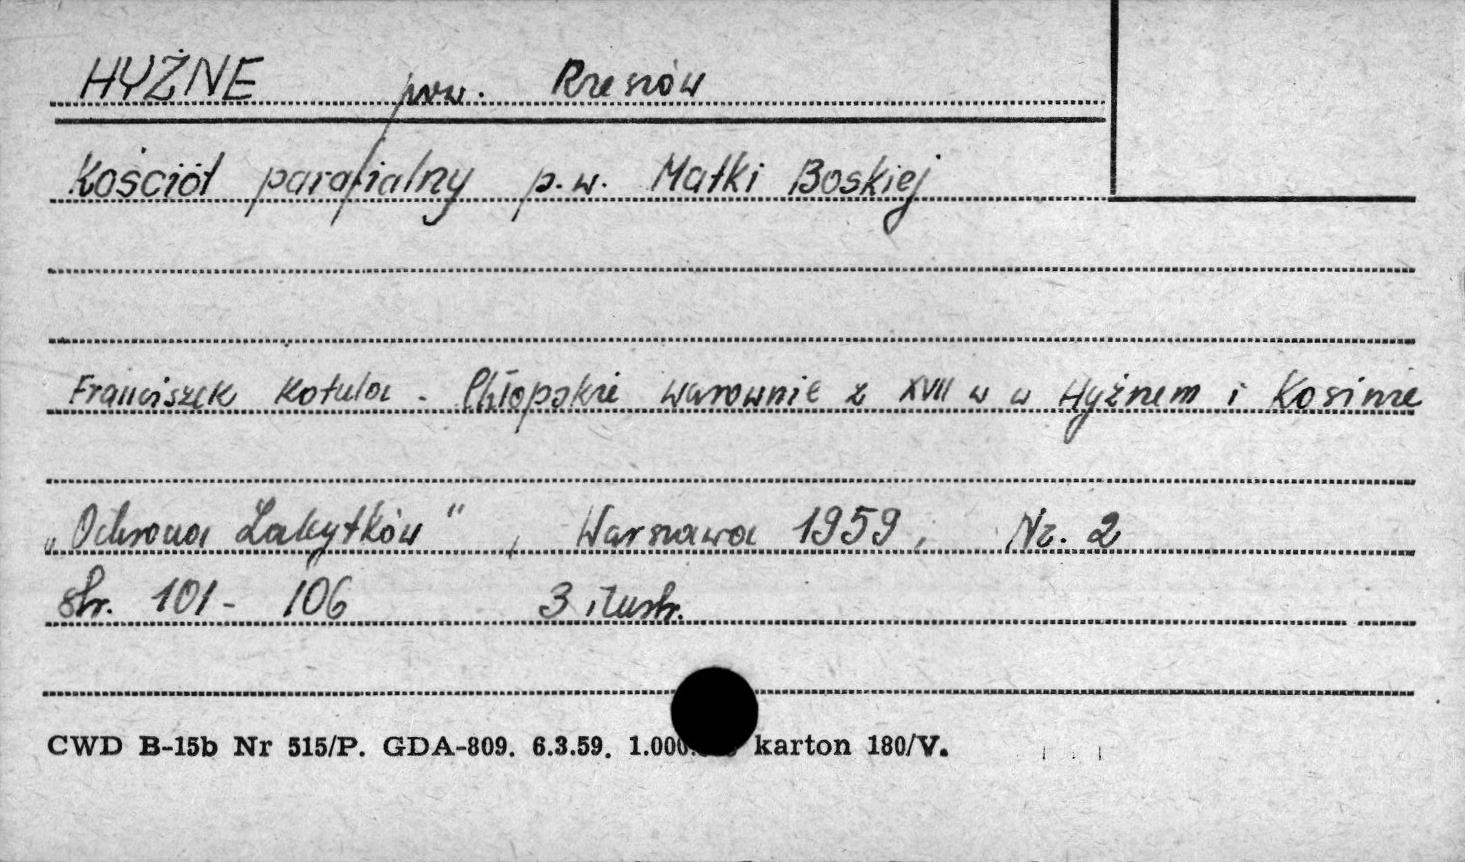 HYŻNE pow. Rzeszów
Kościół parafialny p.w. Matki Boskiej
Franciszek Kotula - Chłopskie warownie z XVII w w Hyżnem i Kosinie
„Ochrona Zabytków", Warszawa 1959, Nr. 2
str. 101 - 106 3 ilustr.
CWD B-15b Nr 515/P. GDA-809. 6.3.59. 1.000. karton 180/V.